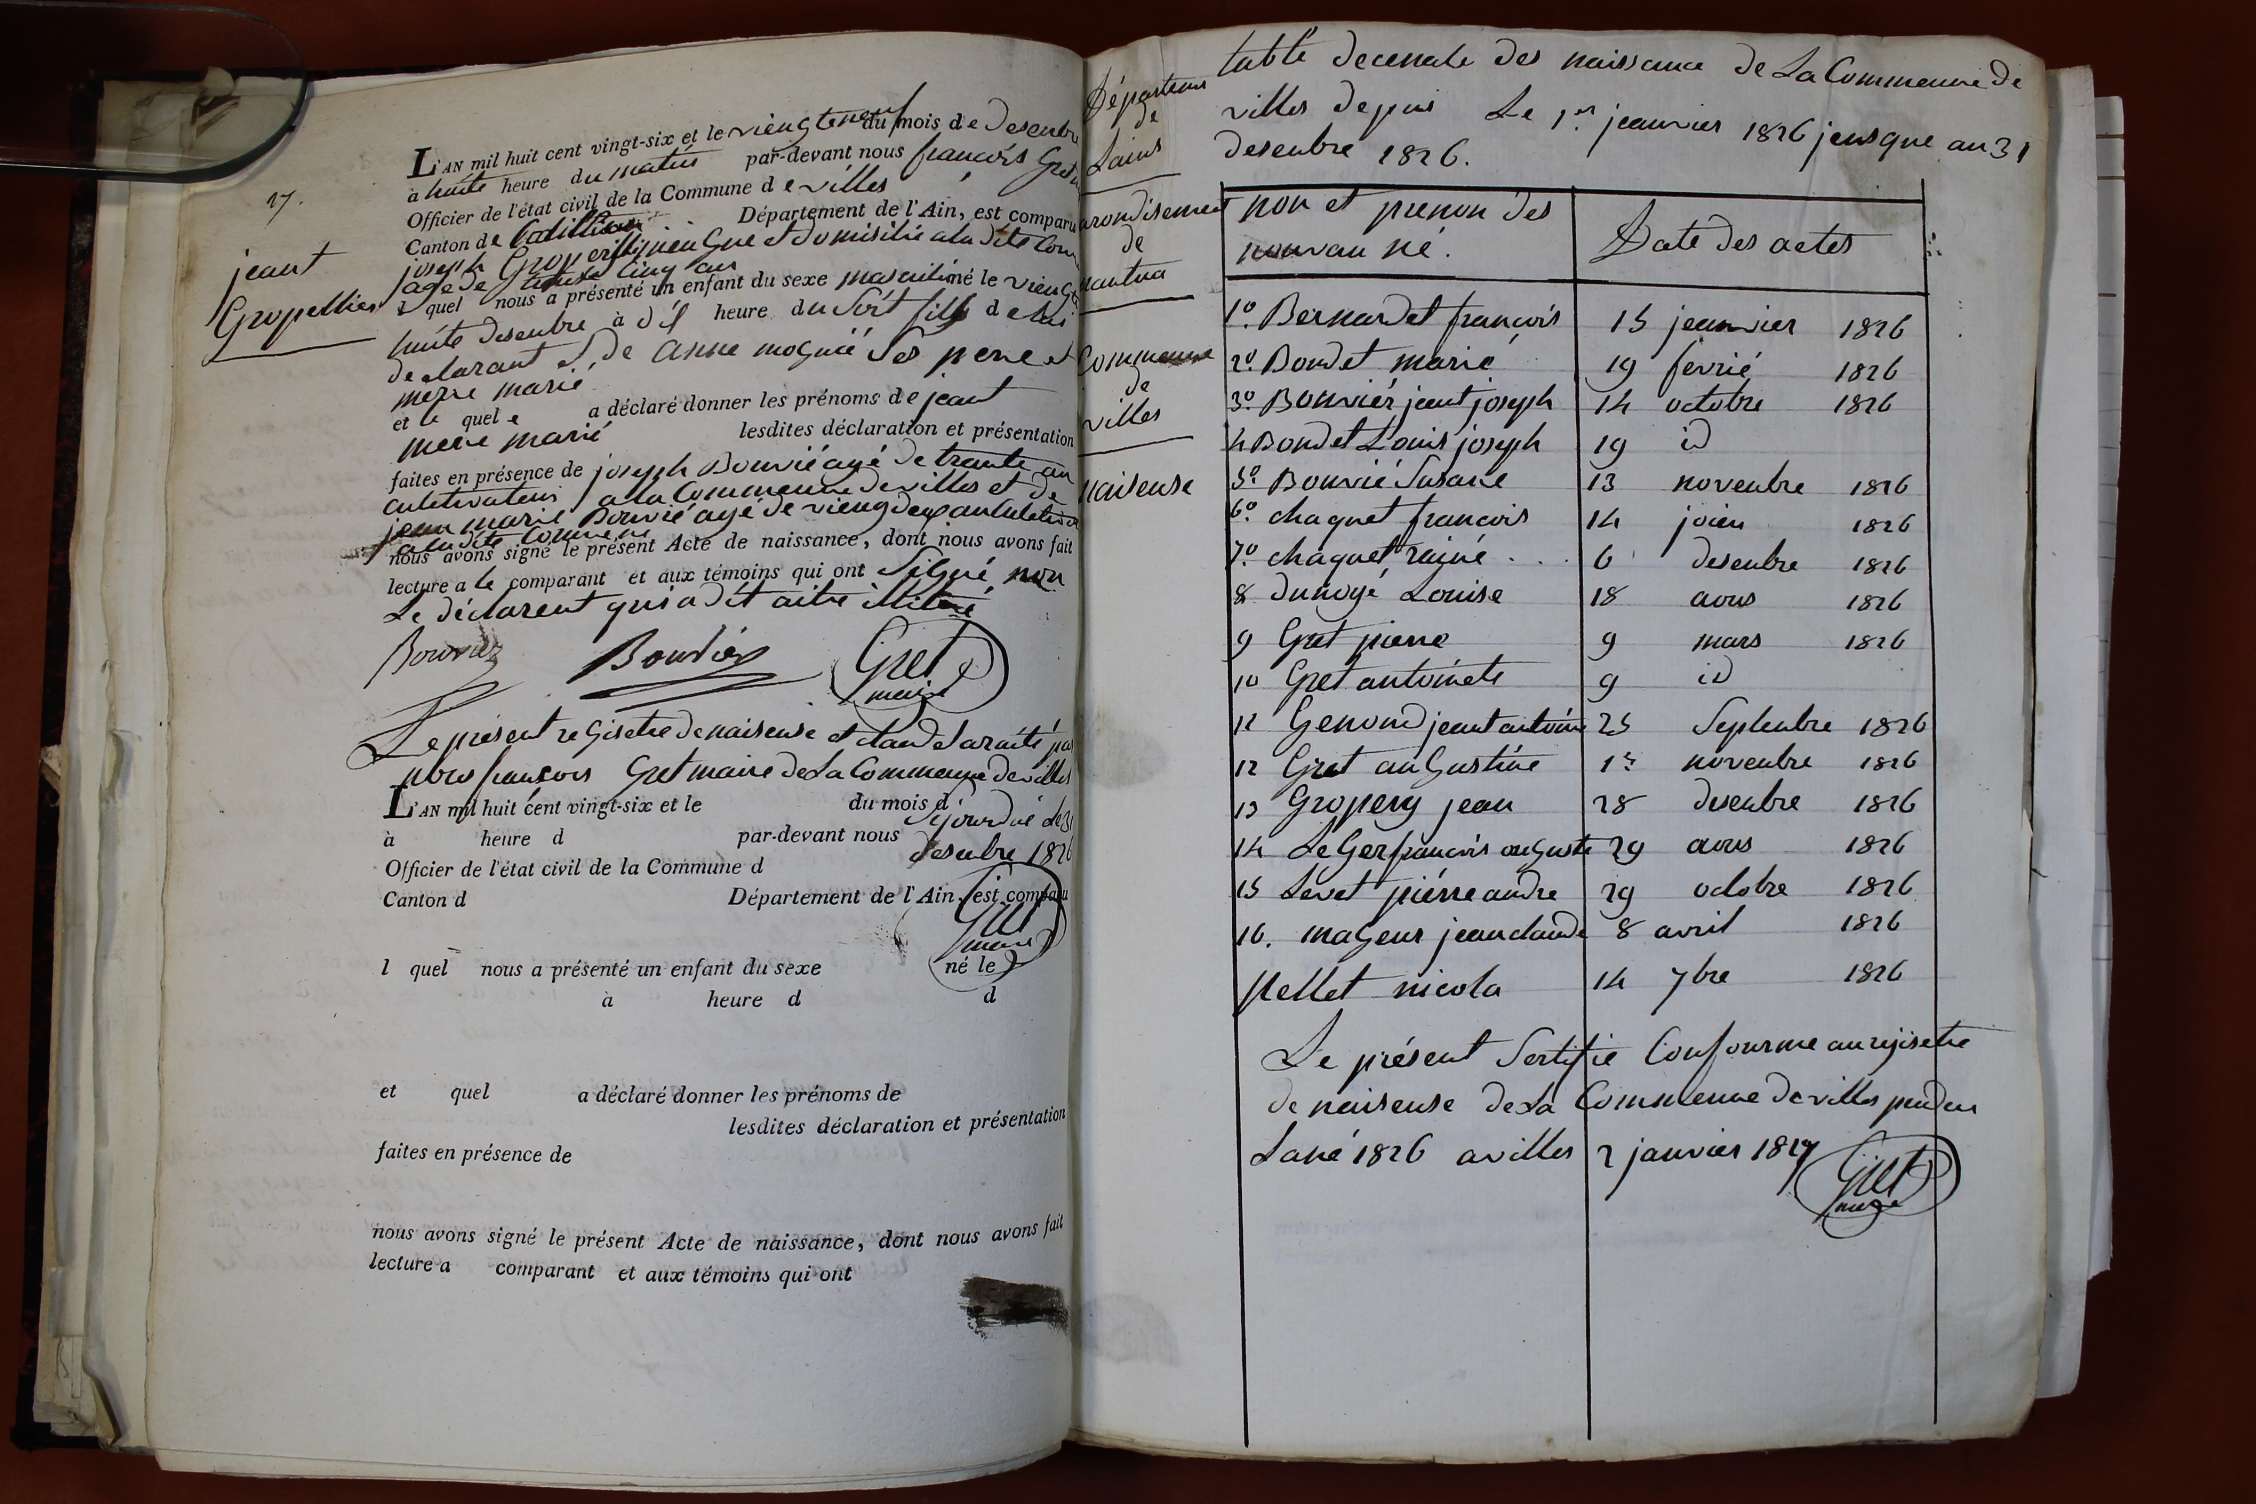 17.
jeant
Gropellier
L'AN mil huit cent vingt-six et le viengteneuf du mois de desenbre
à huite heure du matin par-devant nous francois Gret
Officier de l'état civil de la Commune de villes
Canton de Département de l'Ain, est comparu
joseph et domisilié a la dite
age de cinq ans
l quel nous a présenté un enfant du sexe masculin né le vieng
huite desenbre à dis heure du soir fils de
declarant et de anne mognié ses perre et
merre marié
et le quel e a déclaré donner les prénoms de jeant
mere marié lesdites déclaration et présentation
faites en présence de joseph Bouvié agé de trante an
cultivateur a la Commeune de villes et de
jean marie Bouvié agé de vieng deux an
a la dite
nous avons signé le présent Acte de naissance, dont nous avons fait
lecture a le comparant et aux témoins qui ont Signé non
Le déclarent qui a dit aitre
Bouvier Bouvier Gret
maire
Le présent regisetre de naisense par
nous francois Gret maire de La Commeune de villes
L'AN mil huit cent vingt-six et le du mois d
à heure d par-devant nous
Officier de l'état civil de la Commune d desenbre 1826
Canton d Département de l'Ain, est comparu
Gret
maire
l quel nous a présenté un enfant du sexe né le
à heure d d
et quel a déclaré donner les prénoms de
lesdites déclaration et présentation
faites en présence de
nous avons signé le présent Acte de naissance, dont nous avons fait
lecture a comparant et aux témoins qui ont
Département
de
Lains
arondisement
de
nantua
Commeune
de
villes
naisense
table decenale des naissance de La Commeune de
villes depuis Le 1er jeanvier 1826 jeusque au 31
desenbre 1826.
non et prenon des
nouvau né.
Date des actes
1º. Bernardet francois 15 jeanvier 1826
2º. Bondet marié 19 fevrié 1826
3º. Bouvier jeant joseph 14 octobre 1826
4 Bondet Louis joseph 19 id
5º. Bouvié Susane 13 novenbre 1826
6º. chaquet francois 14 joien 1826
7º. chaquet rainé . . . 6 desenbre 1826
8 dunoyé Louise 18 aous 1826
9 Gret pierre 9 mars 1826
10 Gret antoinete 9 id
11 Genoud jeant antoine 25 Septenbre 1826
12 Gret auGustine 1er novenbre 1826
13 Gropery jean 28 desenbre 1826
14 LeGer francois auGuste 29 aous 1826
15 Levet piérre andre 29 octobre 1826
16. maGeur jean claude 8 avril 1826
pellet nicola 14 7bre 1826
Le présent Sertifie Confourme au rejisetre
de naisense de La Commeune de villes penden
Lané 1826 a villes 2 janvier 1827
Gret
maire